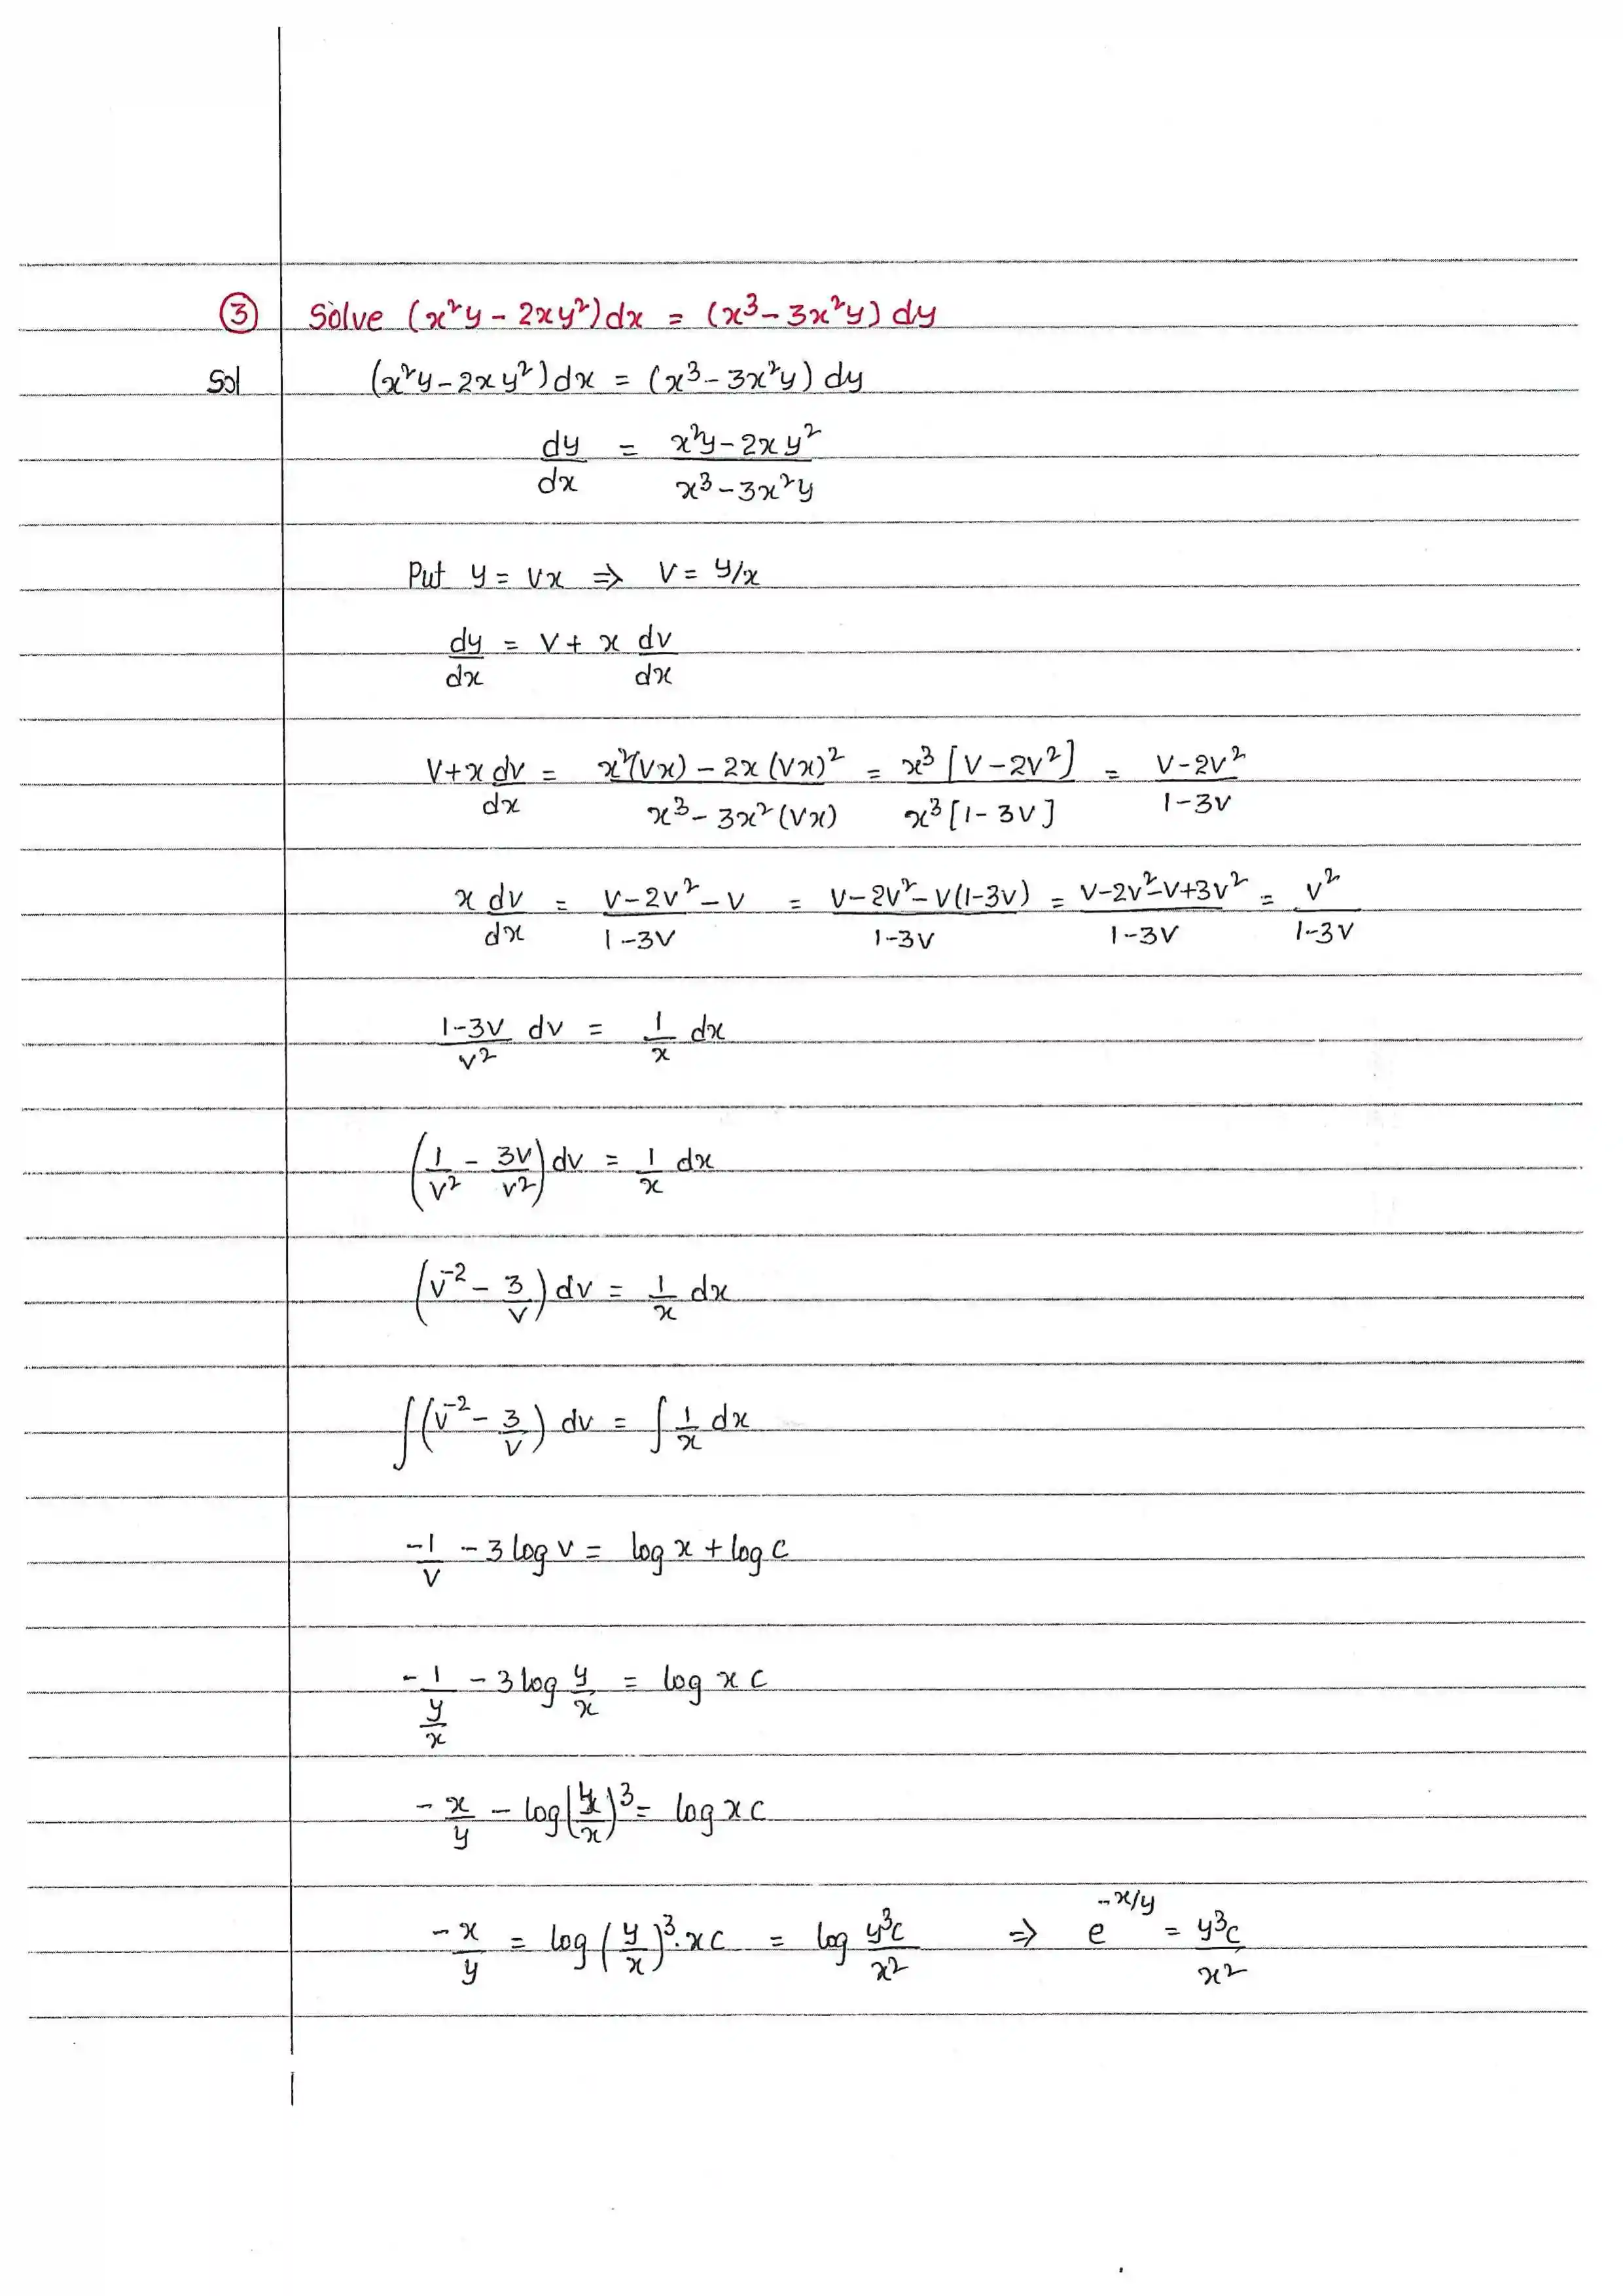 ③ Solve (x²y - 2xy²)dx = (x³ - 3x²y) dy
Sol (x²y - 2xy²)dx = (x³ - 3x²y) dy
dy/dx = (x²y - 2xy²)/(x³ - 3x²y)
Put y = vx ⇒ v = y/x
dy/dx = v + x dv/dx
v + x dv/dx = (x²(vx) - 2x(vx)²)/(x³ - 3x²(vx)) = x³[v - 2v²]/x³[1 - 3v] = (v - 2v²)/(1 - 3v)
x dv/dx = (v - 2v²)/(1 - 3v) - v = (v - 2v² - v(1-3v))/(1-3v) = (v - 2v² - v + 3v²)/(1-3v) = v²/(1-3v)
(1-3v)/v² dv = 1/x dx
(1/v² - 3v/v²) dv = 1/x dx
(v⁻² - 3/v) dv = 1/x dx
∫(v⁻² - 3/v) dv = ∫ 1/x dx
-1/v - 3 log v = log x + log c
- 1/(y/x) - 3 log y/x = log x c
- x/y - log(y/x)³ = log x c
- x/y = log (y/x)³ · x c = log y³c/x² ⇒ e^(-x/y) = y³c/x²